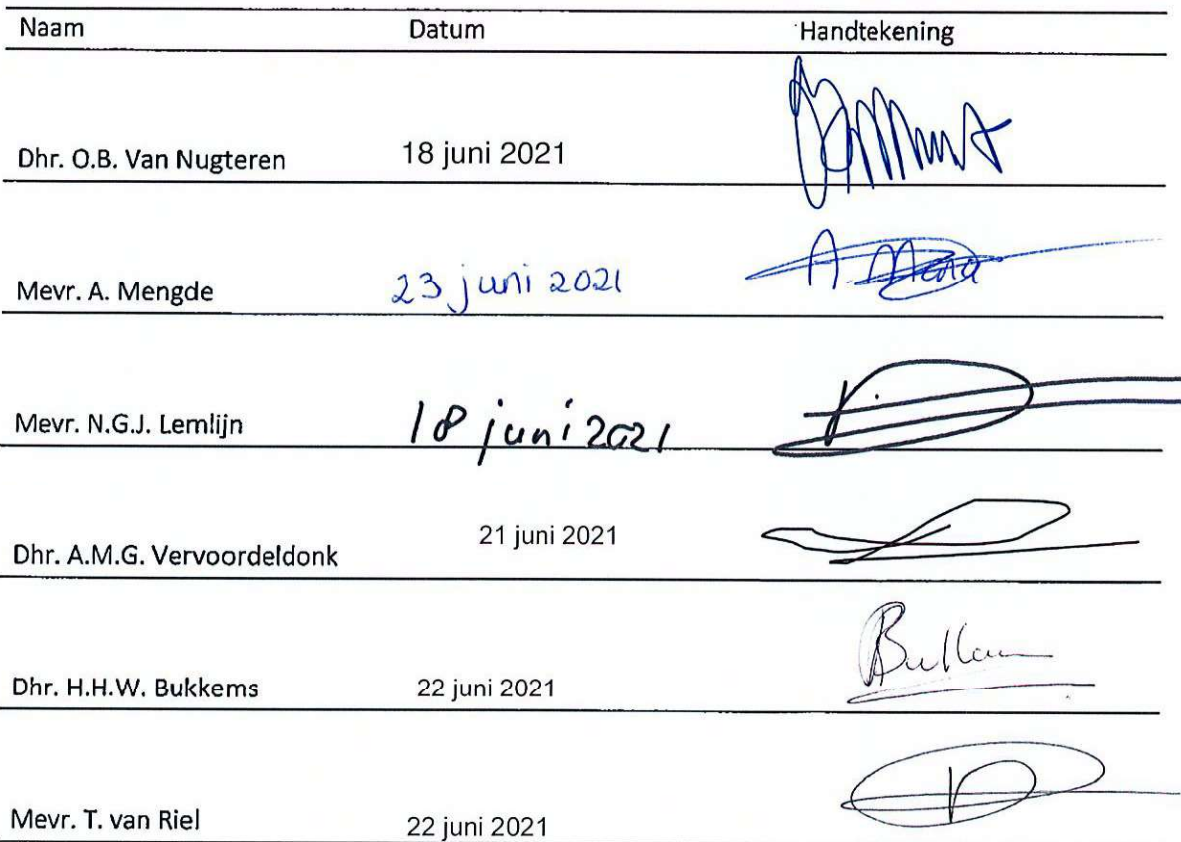 Naam Datum Handtekening
Dhr. O.B. Van Nugteren 18 juni 2021
Mevr. A. Mengde 23 juni 2021
Mevr. N.G.J. Lemlijn 18 juni 2021
Dhr. A.M.G. Vervoordeldonk 21 juni 2021
Dhr. H.H.W. Bukkems 22 juni 2021
Mevr. T. van Riel 22 juni 2021